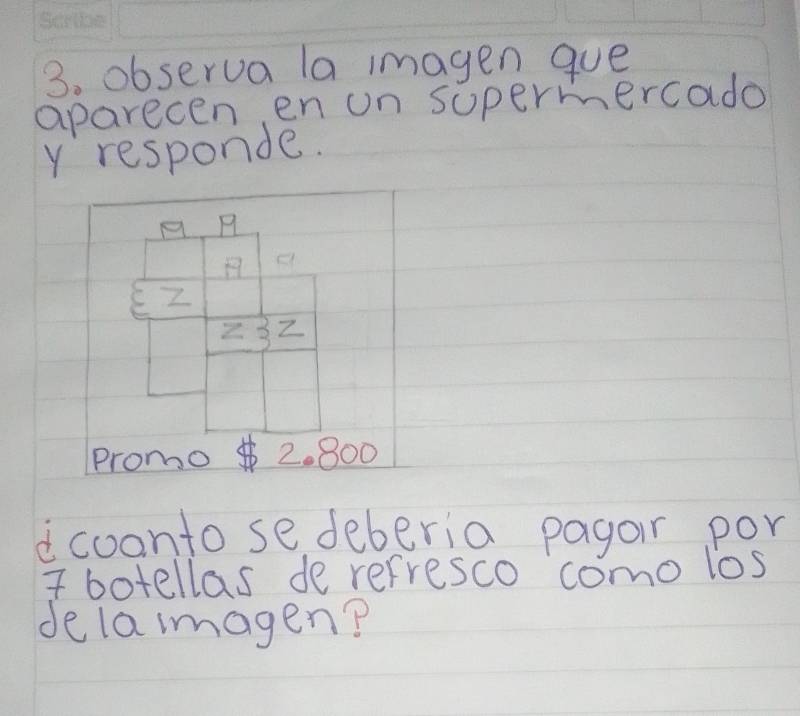 Scribe
3. observa la imagen que
aparecen en un supermercado
y responde.
Ɛ Z
Z 3 Z
Promo $ 2.800
¿cuanto se deberia pagar por
7 botellas de refresco como los
de la imagen?